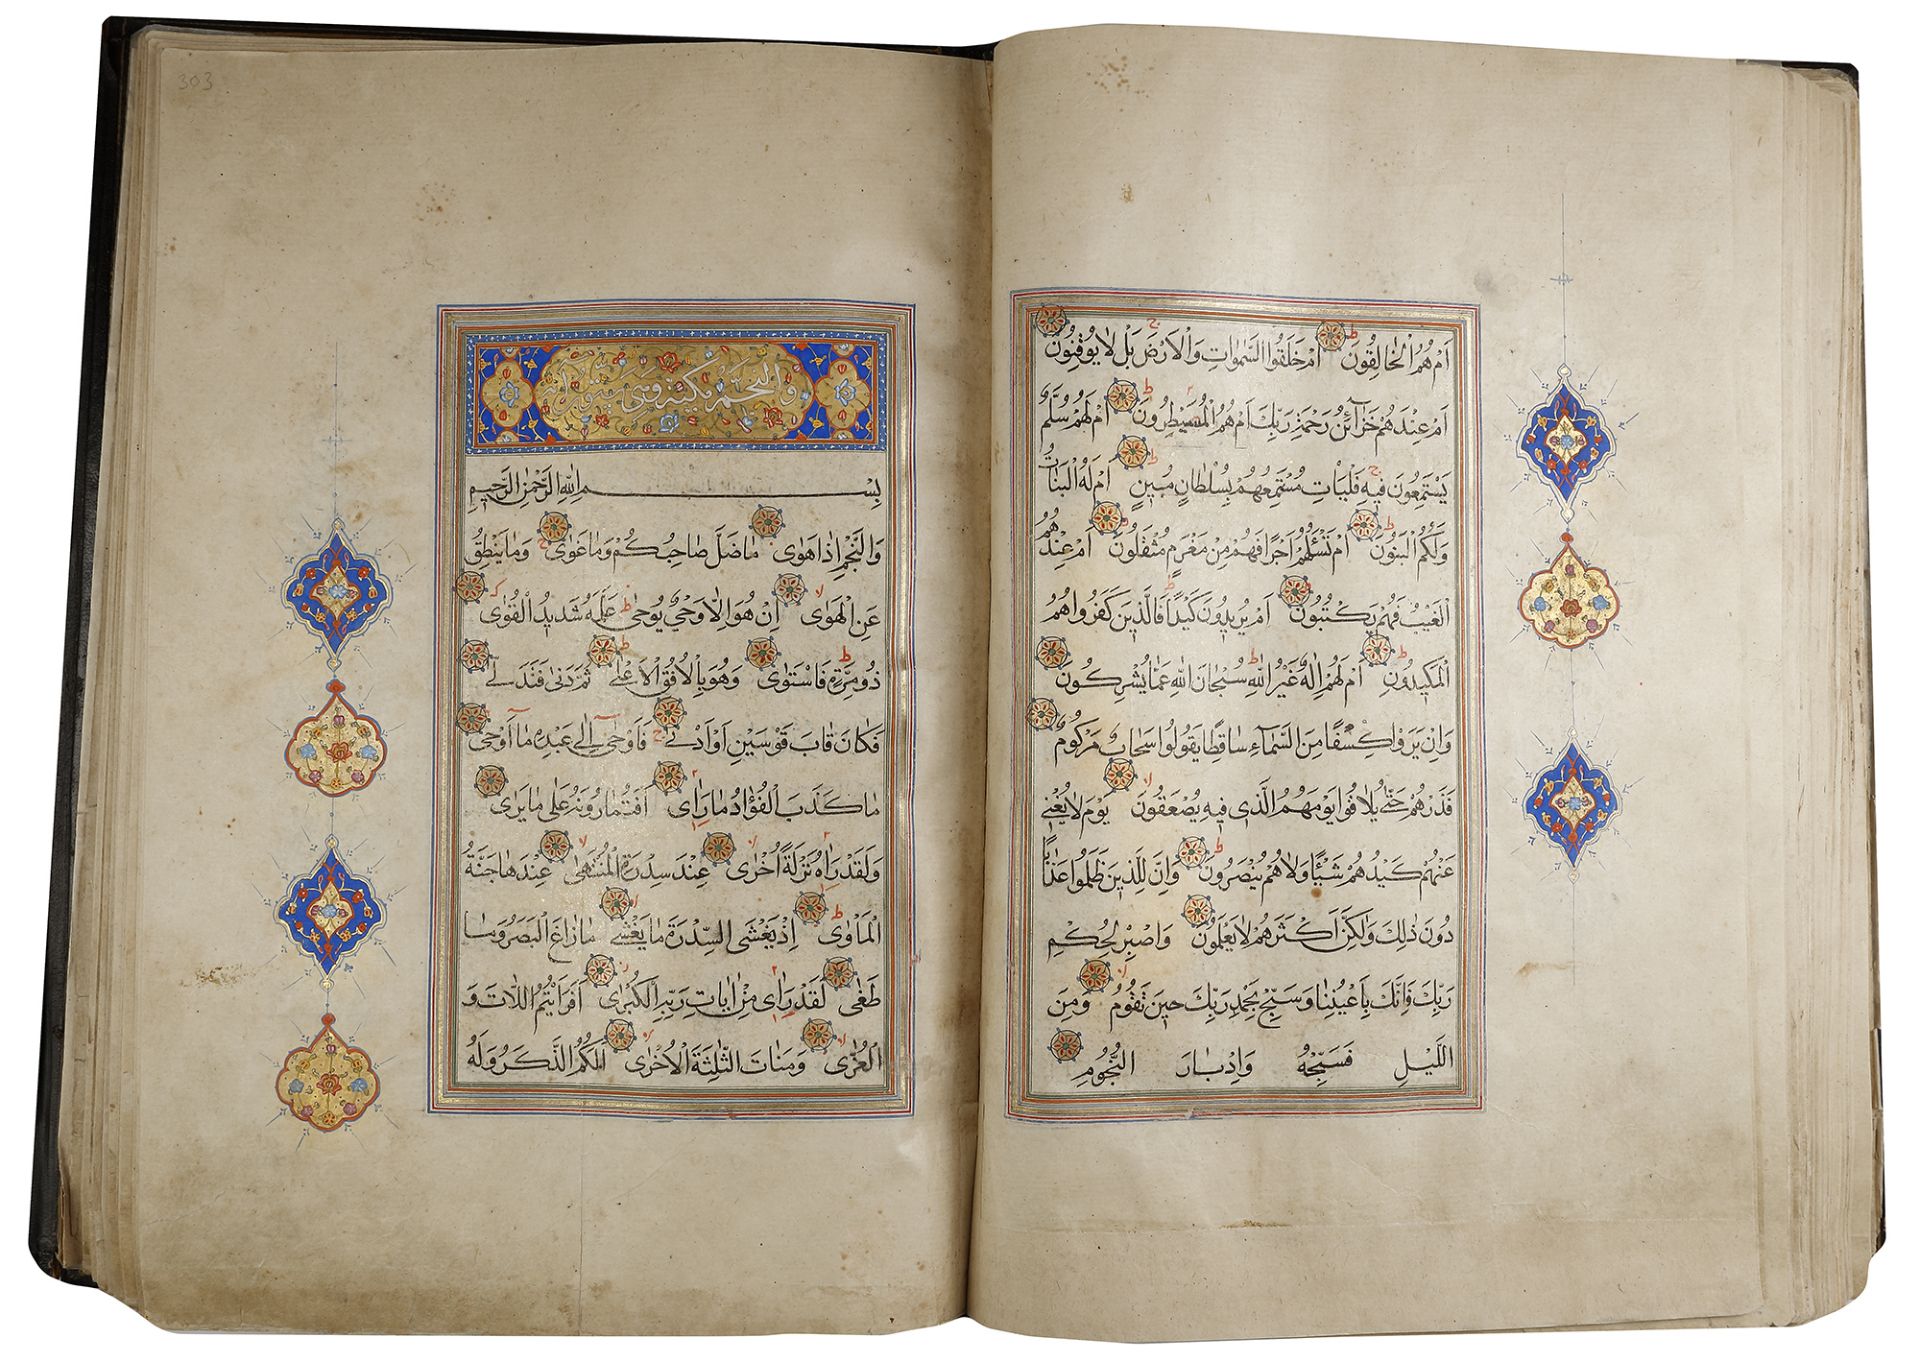 أَمْ هُمُ الْخَالِقُونَ أَمْ خَلَقُوا السَّمٰوَاتِ وَالْأَرْضَ بَلْ لَا يُوقِنُونَ
أَمْ عِنْدَهُمْ خَزَآئِنُ رَحْمَةِ رَبِّكَ أَمْ هُمُ الْمُصَيْطِرُونَ أَمْ لَهُمْ سُلَّمٌ
يَسْتَمِعُونَ فِيهِ فَلْيَأْتِ مُسْتَمِعُهُمْ بِسُلْطَانٍ مُبِينٍ أَمْ لَهُ الْبَنَاتُ
وَلَكُمُ الْبَنُونَ أَمْ تَسْئَلُهُمْ أَجْرًا فَهُمْ مِنْ مَغْرَمٍ مُثْقَلُونَ أَمْ عِنْدَهُمُ
الْغَيْبُ فَهُمْ يَكْتُبُونَ أَمْ يُرِيدُونَ كَيْدًا فَالَّذِينَ كَفَرُوا هُمُ
الْمَكِيدُونَ أَمْ لَهُمْ إِلٰهٌ غَيْرُ اللهِ سُبْحَانَ اللهِ عَمَّا يُشْرِكُونَ
وَإِنْ يَرَوْا كِسْفًا مِنَ السَّمَآءِ سَاقِطًا يَقُولُوا سَحَابٌ مَرْكُومٌ
فَذَرْهُمْ حَتّٰى يُلَاقُوا يَوْمَهُمُ الَّذِي فِيهِ يُصْعَقُونَ يَوْمَ لَا يُغْنِي
عَنْهُمْ كَيْدُهُمْ شَيْئًا وَلَا هُمْ يُنْصَرُونَ وَإِنَّ لِلَّذِينَ ظَلَمُوا عَذَابًا
دُونَ ذٰلِكَ وَلٰكِنَّ أَكْثَرَهُمْ لَا يَعْلَمُونَ وَاصْبِرْ لِحُكْمِ
رَبِّكَ فَإِنَّكَ بِأَعْيُنِنَا وَسَبِّحْ بِحَمْدِ رَبِّكَ حِينَ تَقُومُ وَمِنَ
اللَّيْلِ فَسَبِّحْهُ وَإِدْبَارَ النُّجُومِ
303
وَالنَّجْمِ مَكِّيَّة وَهِيَ سِتُّونَ آيَة
بِسْمِ اللهِ الرَّحْمٰنِ الرَّحِيمِ
وَالنَّجْمِ إِذَا هَوٰى مَا ضَلَّ صَاحِبُكُمْ وَمَا غَوٰى وَمَا يَنْطِقُ
عَنِ الْهَوٰى إِنْ هُوَ إِلَّا وَحْيٌ يُوحٰى عَلَّمَهُ شَدِيدُ الْقُوٰى
ذُو مِرَّةٍ فَاسْتَوٰى وَهُوَ بِالْأُفُقِ الْأَعْلٰى ثُمَّ دَنٰى فَتَدَلّٰى
فَكَانَ قَابَ قَوْسَيْنِ أَوْ أَدْنٰى فَأَوْحٰى إِلٰى عَبْدِهِ مَا أَوْحٰى
مَا كَذَبَ الْفُؤَادُ مَا رَاٰى أَفَتُمَارُونَهُ عَلٰى مَا يَرٰى
وَلَقَدْ رَاٰهُ نَزْلَةً أُخْرٰى عِنْدَ سِدْرَةِ الْمُنْتَهٰى عِنْدَهَا جَنَّةُ
الْمَأْوٰى إِذْ يَغْشَى السِّدْرَةَ مَا يَغْشٰى مَا زَاغَ الْبَصَرُ وَمَا
طَغٰى لَقَدْ رَاٰى مِنْ اٰيَاتِ رَبِّهِ الْكُبْرٰى أَفَرَأَيْتُمُ اللَّاتَ وَ
الْعُزّٰى وَمَنَاتَ الثَّالِثَةَ الْأُخْرٰى أَلَكُمُ الذَّكَرُ وَلَهُ